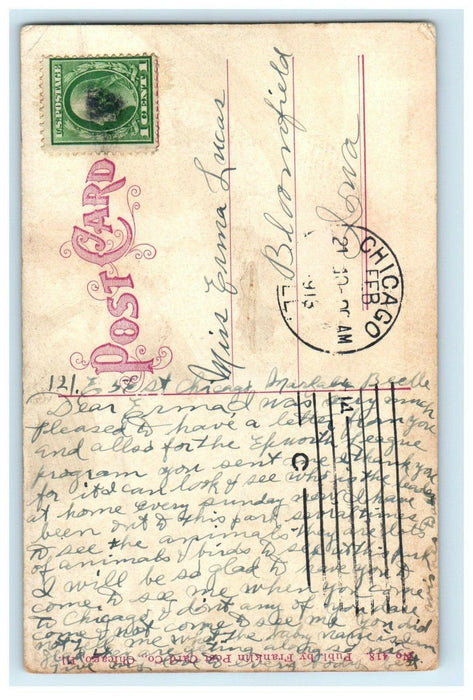 U.S. POSTAGE
1 CENT 1
POST CARD
Miss Erma Lucas
Bloomfield
Iowa
CHICAGO
ILL.
FEB
21 12- AM
1913
C
121. E St Chicago
Dear Erma I was very much
pleased to have a letter from you
and allso for the Epworth League
program you sent me I thank you
for it I can look & see who is the leader
at home every Sunday now I have
been out to this park sometimes
to see the animals they are lots
of animals & birds to see at this park
I will be so glad to have you
come to see me when you come
to Chicago I dont any of you
come & not come to see me you did
not tell me what the baby name is
No. 418 Publ. by Franklin Post Card Co., Chicago, Ill.